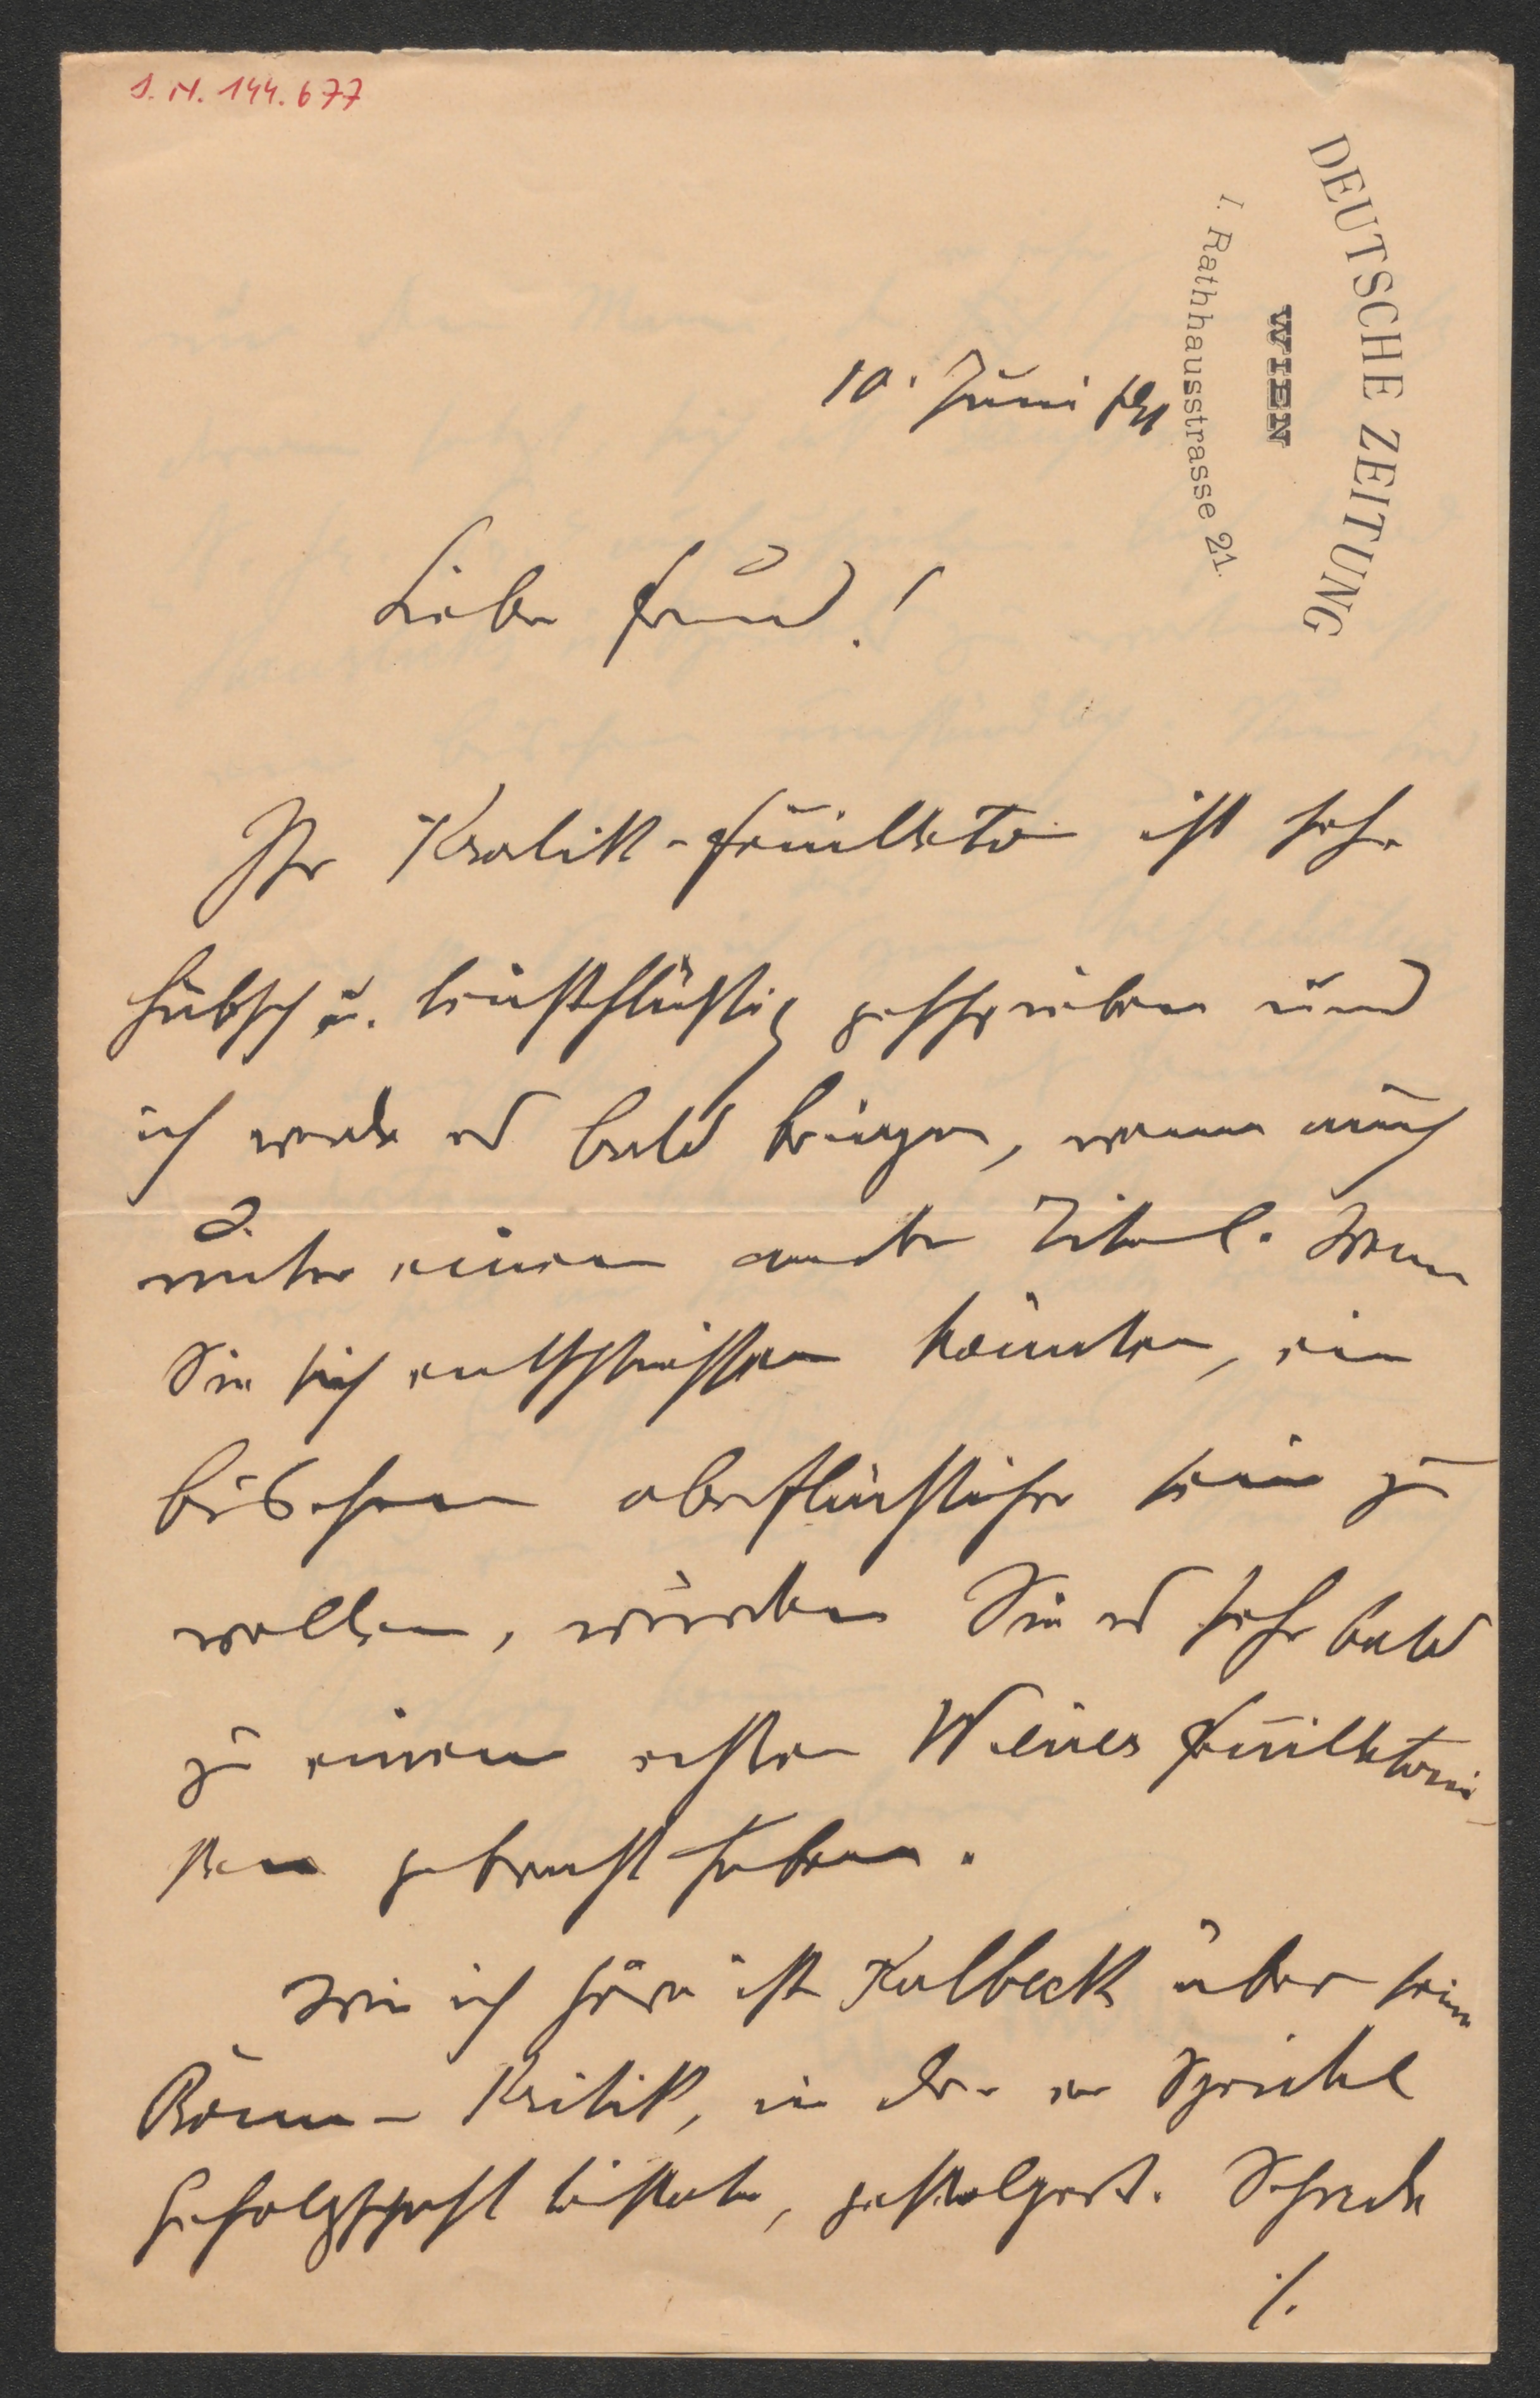 S. N. 144.677
DEUTSCHE ZEITUNG
WIEN
I. Rathhausstrasse 21.
10. Juni
Lieber Freund!
Ihr Kralik-Feuilleton ist sehr
hübsch u. leichtflüssig geschrieben und
ich werde es bald bringen, wenn auch
unter einem andern Titel. Wenn
Sie sich entschließen könnten, ein
bischen oberflächlicher sein zu
wollen, würden Sie es sehr bald
zu einem echten Wiener Feuilletoni-
sten gebracht haben.
Wie ich höre ist Kalbeck über seine
Kritik, in der er Speidel
Gefolgschaft leistete, gestolpert. Schade
./.